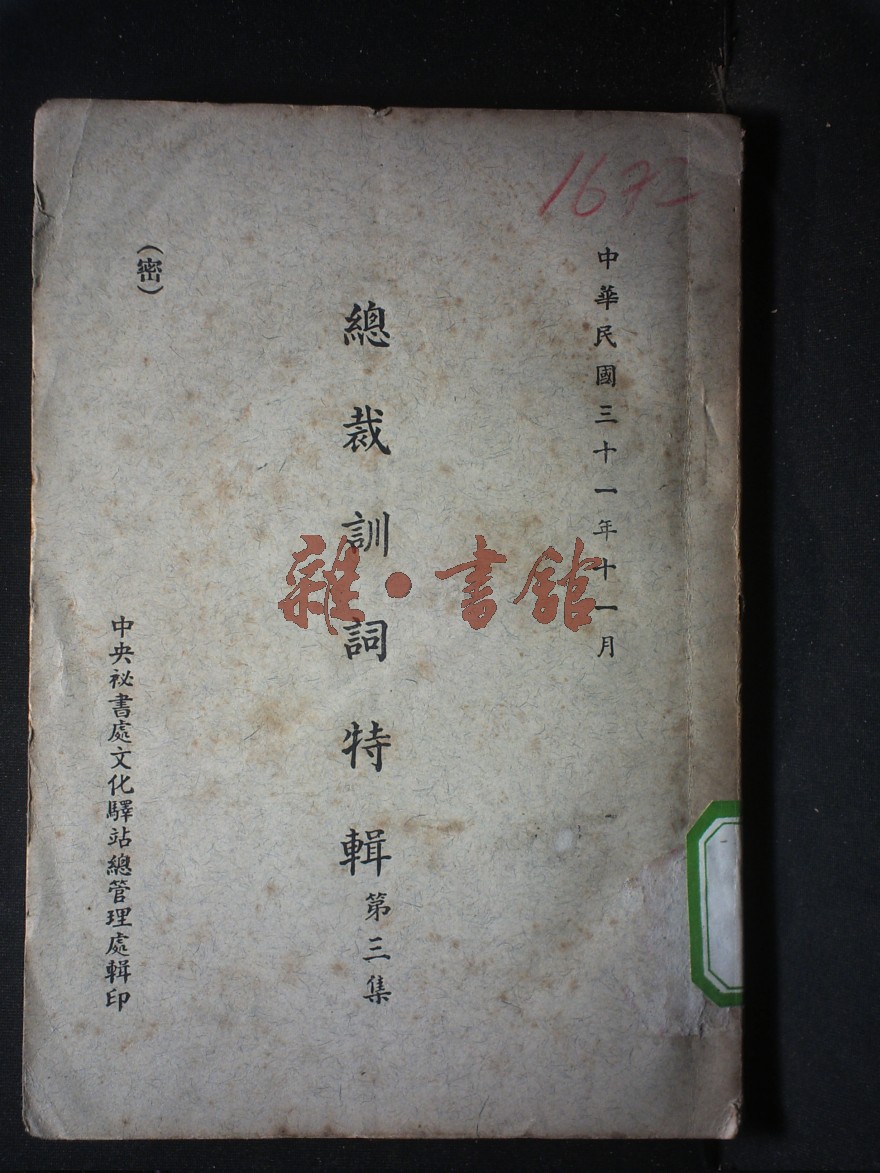 1672
中華民國三十一年十一月
總裁訓詞特輯第三集
(密)
中央祕書處文化驛站總管理處輯印
雜·書舘